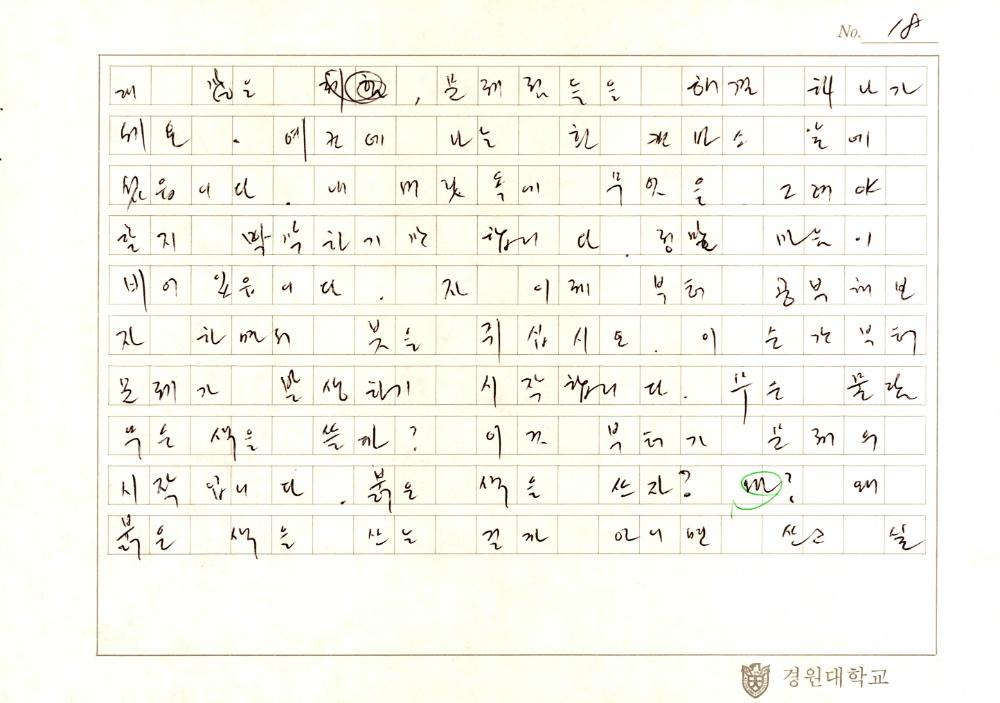 No. 18
게 많을 , 문제점들을 해결 해 나가
세요. 예컨대 나는 흰 캔바스 앞에
섰읍니다. 내 머릿속에 무엇을 그려야
할지 막막하기만 합니다. 정말 마음이
비어 있읍니다. 자 이제 부터 공부해보
자 하면서 붓을 쥐십시오. 이 순간부터
문제가 발생하기 시작합니다. 무슨 물감
무슨 색을 쓸까? 이것 부터가 문제의
시작입니다. 붉은 색을 쓰자? 왜? 왜
붉은 색을 쓰는 걸까 아니면 쓰고 싶
경원대학교